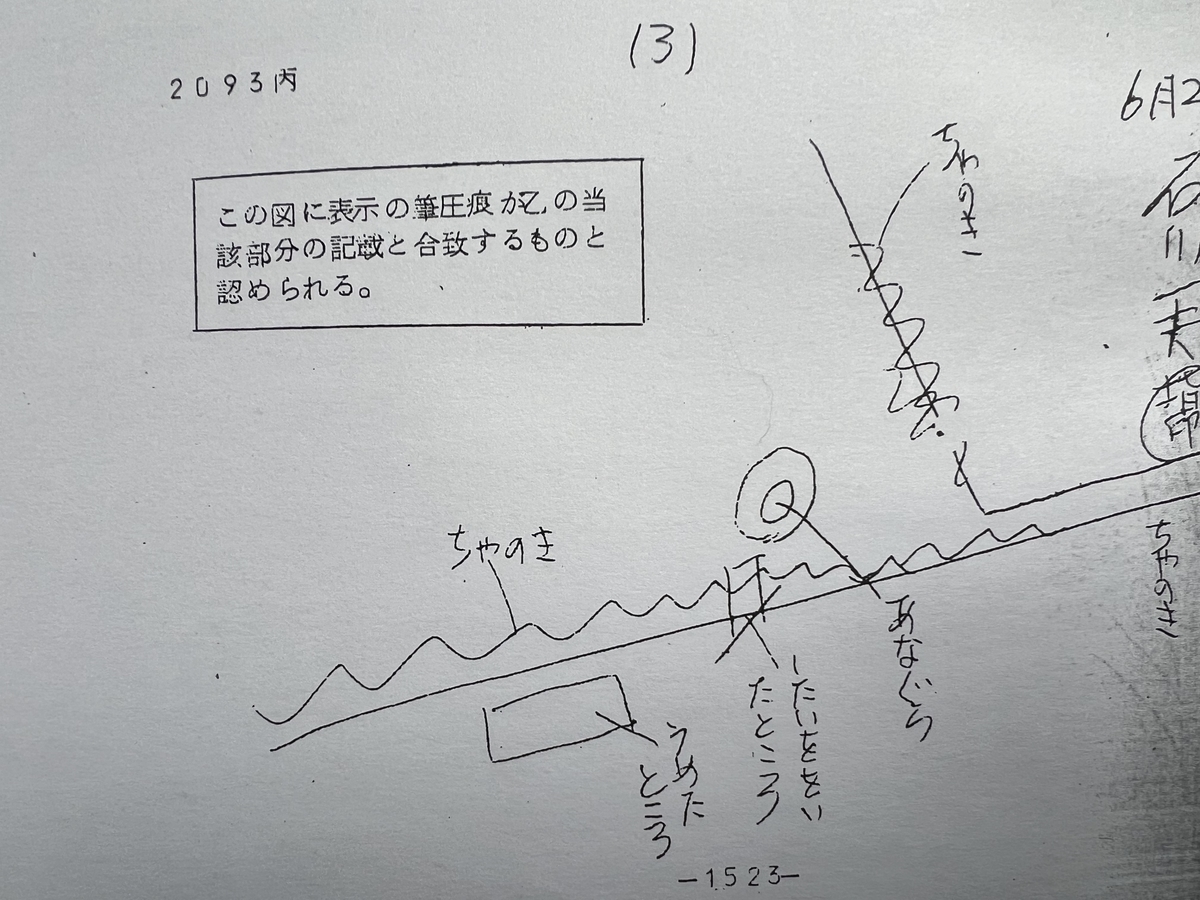 (3)
2093丙
この図に表示の筆圧痕が乙の当
該部分の記載と合致するものと
認められる。
6月2
石
川
一
夫
ちゃのき
ちゃのき
ちやのき
あなぐら
したいををい
たところ
うめた
ところ
-1523-